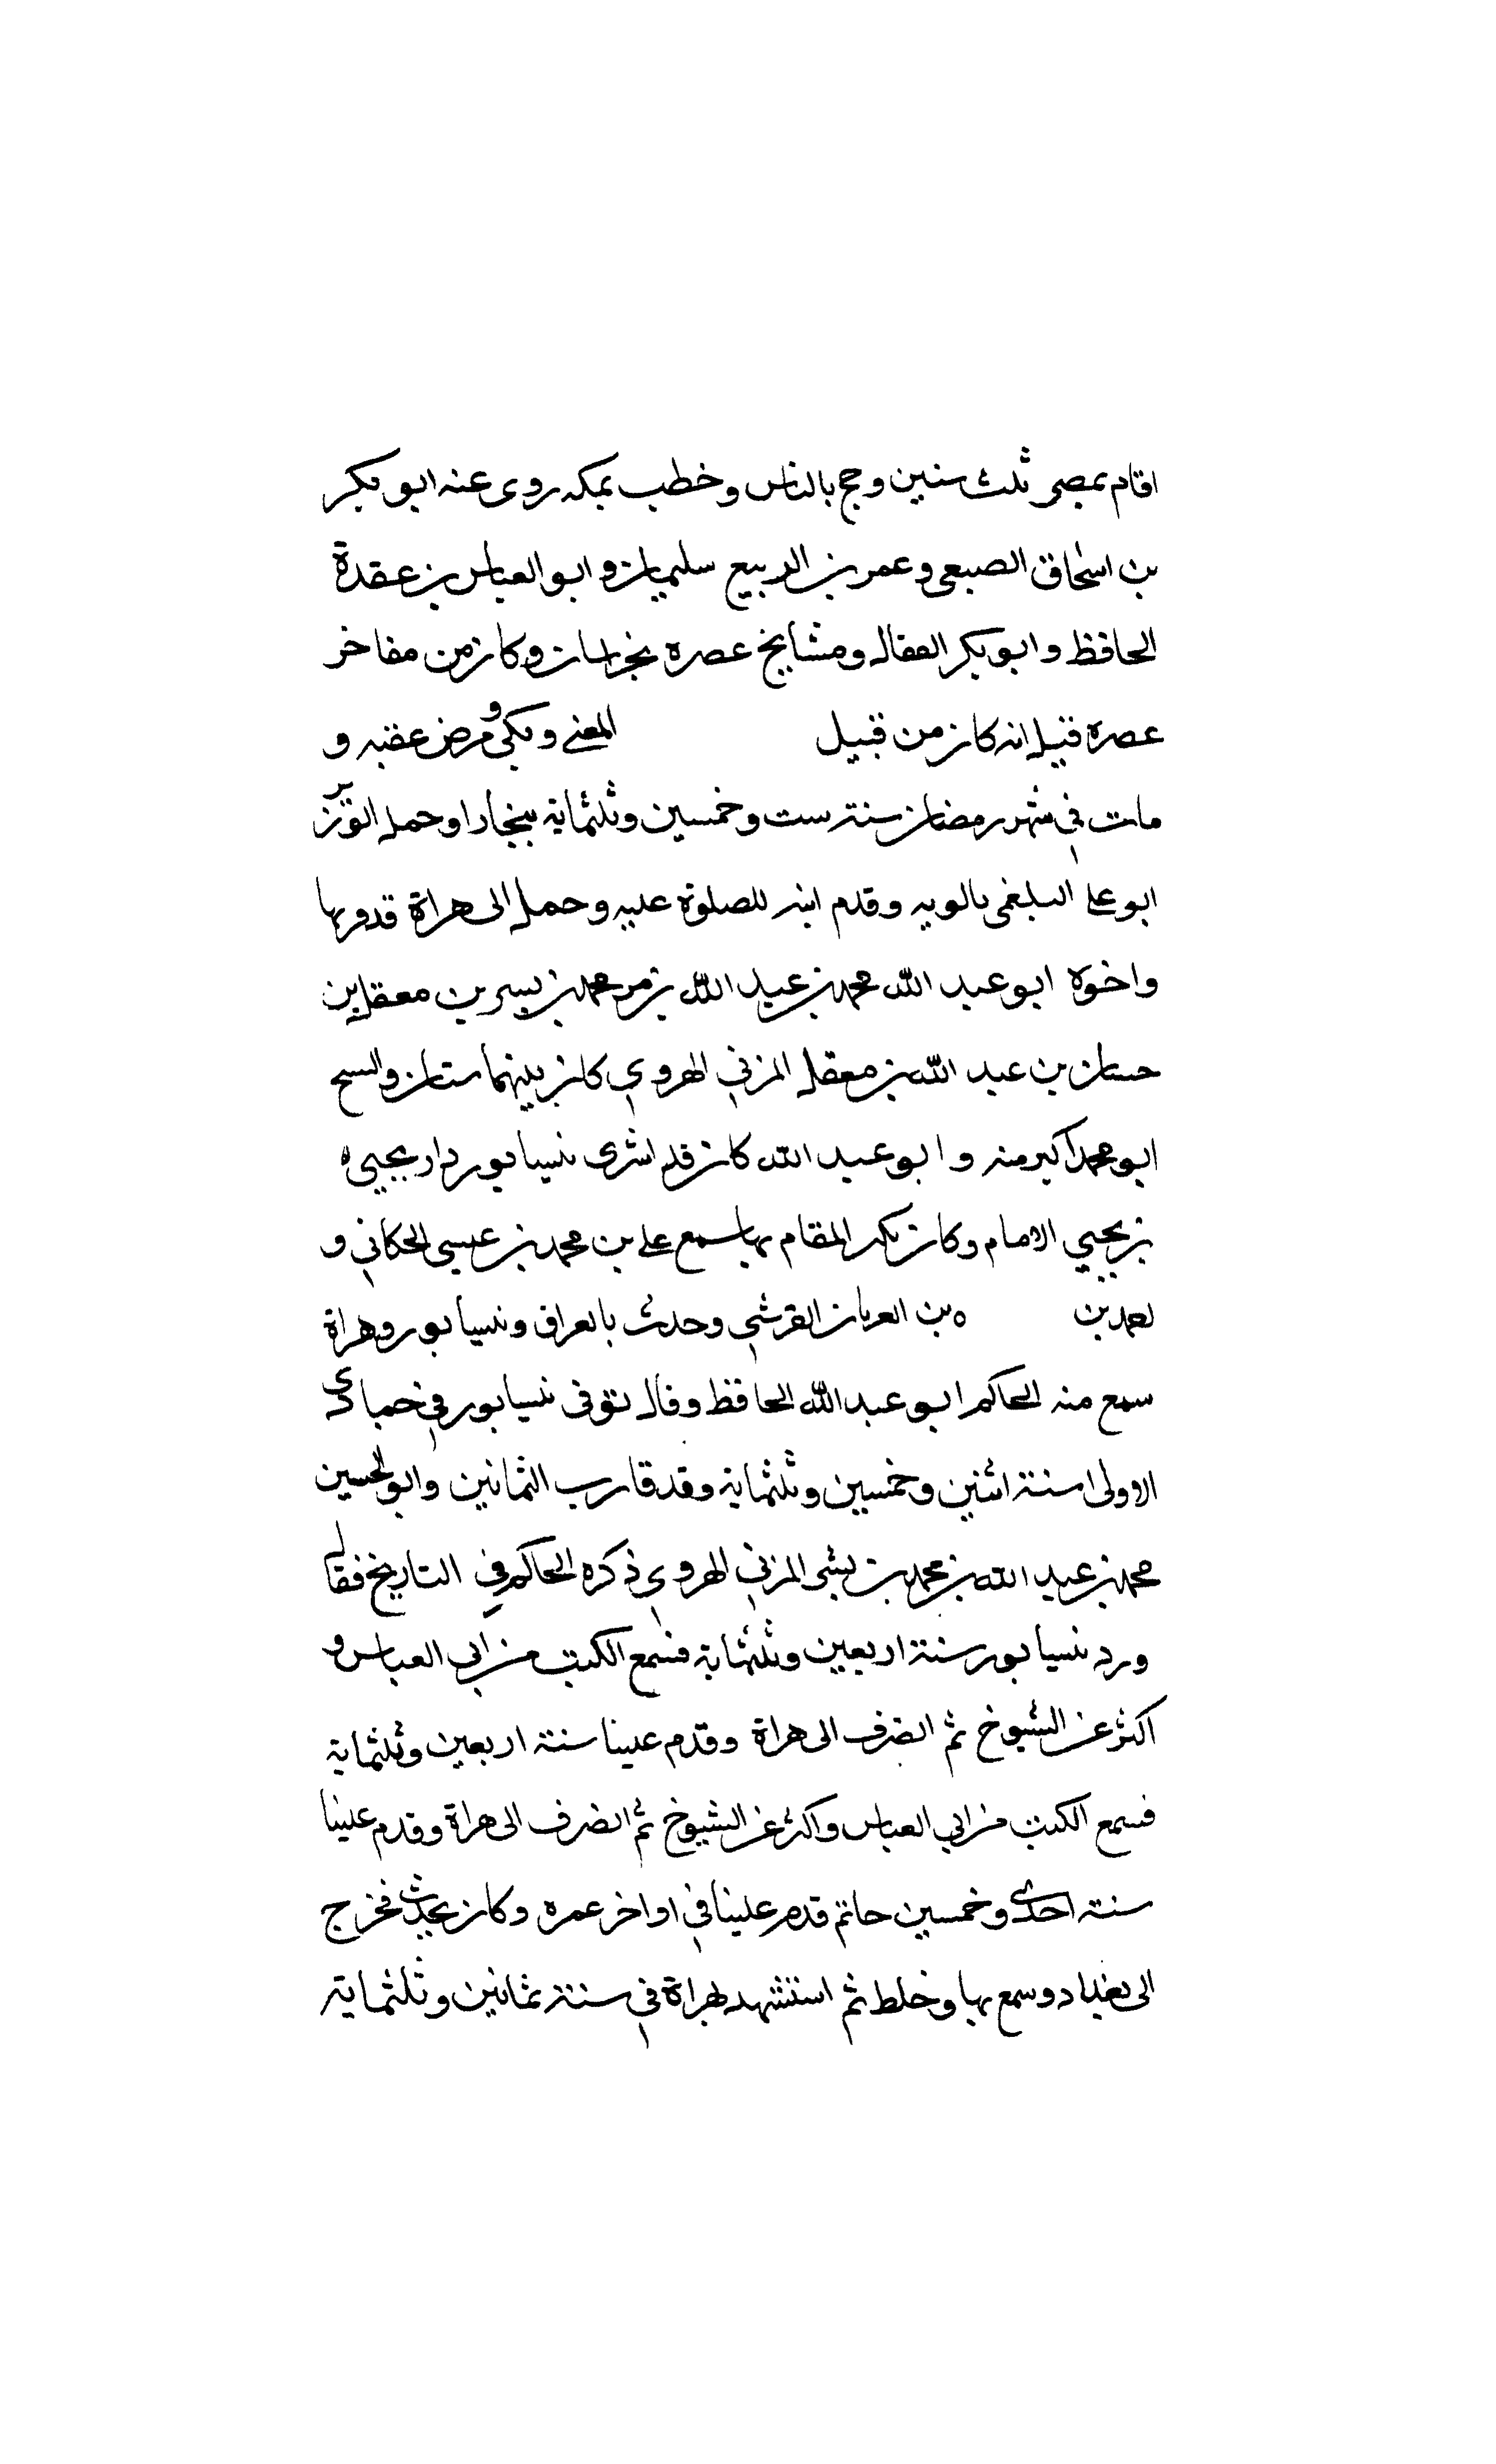 اقام بمصر ثلث سنين وحج بالناس وخطب بمكه روى عنه ابو بكر
بن اسحاق الصبعى وعمر بن الربيع سليمان وابو العباس بن عقدة
الحافظ وابو بكر القفال ومشايخ عصره بخراسان وكان من مفاخر
عصره قيل انه كان من قبيل المغنى وبكى ومرض عقبه و
مات فى شهر رمضان سنة ست وخمسين وثلثماية ببخارا وحمل الوزير
ابو على البلغمى بالويه وقدم ابنه للصلوة عليه وحمل الى هراة قدفن بها
واخوه ابو عبد الله محمد بن عبد الله بن محمد بن بسر بن معقل بن
حسان بن عبد الله بن معقل المزنى الهروى كان بينهما سنان والسح
ابو محمد اكبر منه وابو عبد الله كان قد اشرى نيسابور دار يحيى
بن يحيى الامام وكان يكثر المقام بها سمع على بن محمد بن عيسى الحكانى و
بن العريان القرشى وحدث بالعراق ونيسابور وهراة
سمع منه الحاكم ابو عبد الله الحافظ وقال توفى نيسابور فى جمادى
الاولى سنة اثنين وخمسين وثلثماية وقد قارب الثمانين وابو الحسين
محمد بن عبد الله بن محمد بن بشر المزنى الهروى ذكره الحاكم فى التاريخ فقال
ورد نيسابور سنة اربعين وثلثماية فسمع الكتب من ابى العباس و
اكثر عن الشيوخ ثم انصرف الى هراة وقدم علينا سنة اربعين وثلثماية
فسمع الكتب من ابى العباس واكثر عن الشيوخ ثم انصرف الى هراة وقدم علينا
سنة احدى وخمسين حاتم قدم علينا فى اواخر عمره وكان يحدث فخرج
الى بغداد وسمع بها وخلط ثم استشهد بهراة فى سنة ثمانين وثلثماية